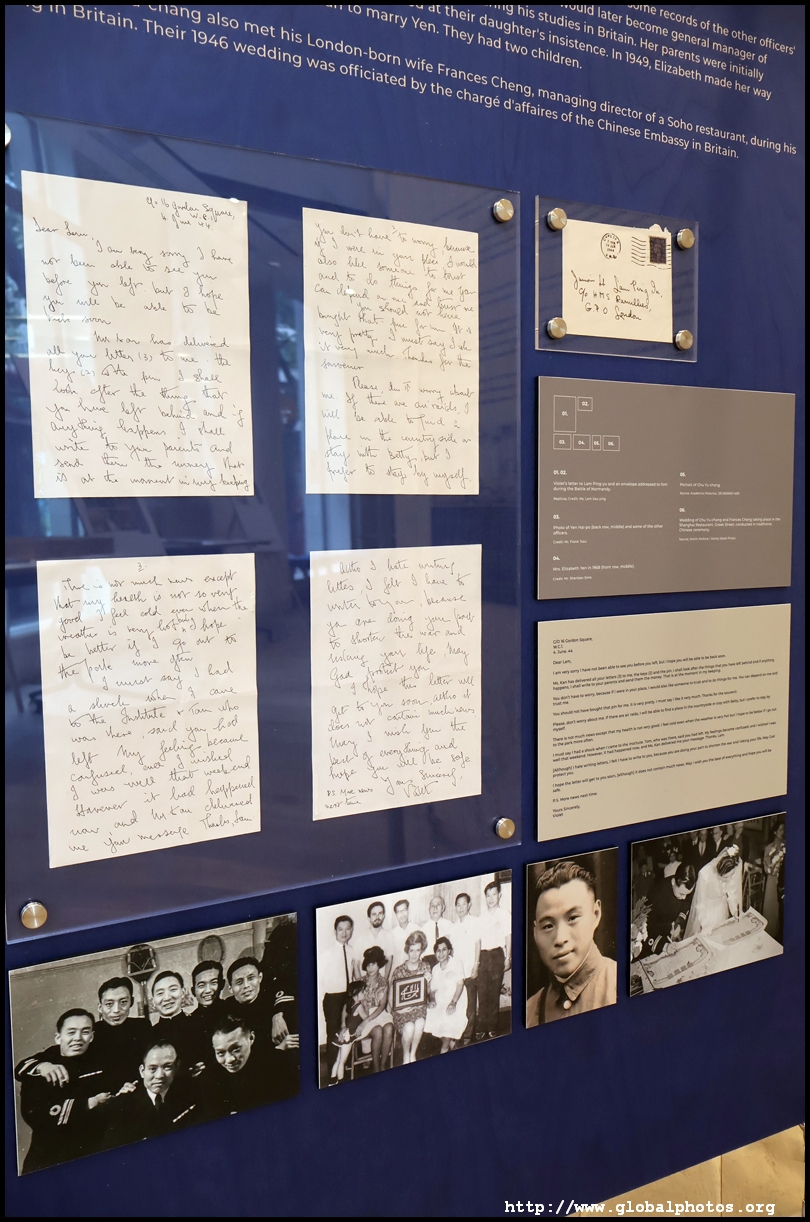 some records of the other officers'
ring his studies in Britain.
would later become general manager of
ed at their daughter's insistence. In 1949, Elizabeth made her way
Her parents were initially
to marry Yen. They had two children.
g in Britain.
Chang also met his London-born wife Frances Cheng, managing director of a Soho restaurant, during his
Their 1946 wedding was officiated by the chargé d'affaires of the Chinese Embassy in Britain.
c/o 16 Gordon Square,
W.C.1.
4 June 44
Dear Lam,
I am very sorry I have
not been able to see you
before you left but I hope
you will be able to be
back soon
Ms Kan has delivered
all your letter (3) to me. the
key (2) & the pin. I shall
look after the things that
you have left behind and if
anything happens I shall
write to your parents and
send them the money that
is at the moment in my keeping
2
you don't have to worry because
if I were in your place I would
also like someone to trust
and to do things for me you
can depend on me and trust me
You should not have
bought that pin for me. It is
very pretty. I must say I like
it very much thanks for the
souvenir
Please, don't worry about
me. If there are air raids, I
will be able to find a
place in the country side or
stay with Betty but I
prefer to stay by myself
3.
There is not much news except
that my health is not so very
good. I feel cold even when the
weather is very hot and I hope
be better if I go out to
the park more often
I must say I had
a shock when I came
to the Institute & Tam who
was there, said you had
left My feeling became
confused, and I wished
I was well that week-end
However it had happened
now, and Ms Kan delivered
me your message Thanks, Lam
Altho I hate writing
letters, I felt I have to
write to you, because
you are doing your part
to shorten the war and
risking your life, May
God protect you
I hope this letter will
get to you soon, altho it
does not contain much news
May I wish you the
best of everything and
hope you will be safe
Yours Sincerely,
Violet
P.S. More news
next time
Lam Ping Yu,
c/o H.M.S. Ramillies,
G P O
London
01.
02.
03.
04.
05.
06.
01. 02.
Violet's letter to Lam Ping-yu and an envelope addressed to him
during the Battle of Normandy.
03.
Photo of Yen Hai-po (back row, middle) and some of the other
officers.
04.
Mrs. Elizabeth Yen in 1968 (front row, middle).
05.
Portrait of Chu Yu-chang
06.
Wedding of Chu Yu-chang and Frances Cheng taking place in the
Shanghai Restaurant, Greek Street, conducted in traditional
Chinese ceremony.
C/O 16 Gordon Square,
W.C.1.
4. June. 44
Dear Lam,
I am very sorry I have not been able to see you before you left, but I hope you will be able to be back soon.
Ms. Kan has delivered all your letters (3) to me, the keys (2) and the pin. I shall look after the things that you have left behind and if anything
happens, I shall write to your parents and send them the money. That is at the moment in my keeping.
You don't have to worry, because if I were in your place, I would also like someone to trust and to do things for me. You can depend on me and
trust me.
You should not have bought that pin for me. It is very pretty. I must say I like it very much. Thanks for the souvenir.
Please, don't worry about me. If there are air raids, I will be able to find a place in the countryside or stay with Betty, but I prefer to stay by
myself.
There is not much news except that my health is not very good. I feel cold even when the weather is very hot but I hope to be better if I go out
to the park more often.
I must say I had a shock when I came to the Institute. Tam, who was there, said you had left. My feelings became confused and I wished I was
well that weekend. However, it had happened now, and Ms. Kan delivered me your message. Thanks, Lam.
[Although] I hate writing letters, I felt I have to write to you, because you are doing your part to shorten the war and risking your life. May God
protect you.
I hope the letter will get to you soon, [although] it does not contain much news. May I wish you the best of everything and hope you will be
safe.
P.S. More news next time.
Yours Sincerely,
Violet
http://www.globalphotos.org